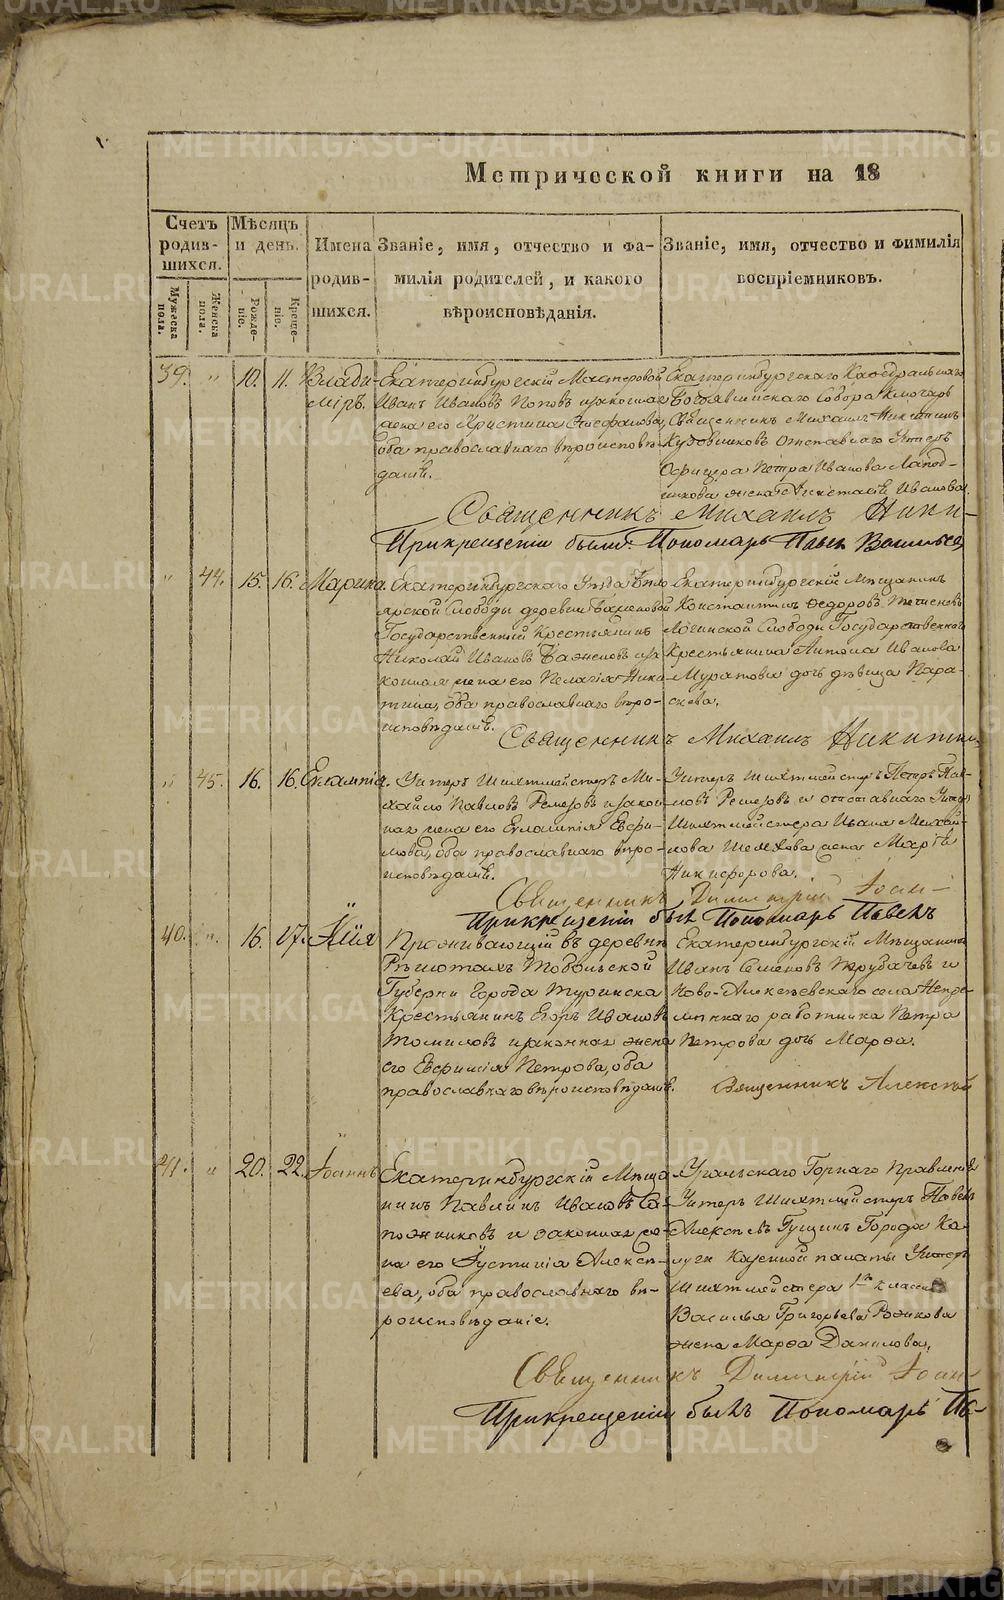 Метрической книги на 18
Счетъ родив-шихся.
Мужеска пола.
Женска пола.
Мѣсяцъ и день.
Рожде-ніе.
Креще-ніе.
Имена родив-шихся.
Званіе, имя, отчество и фа-
милія родителей, и какого
вѣроисповѣданія.
Званіе, имя, отчество и фимилія
воспріемниковъ.
39. " 10. 11. Влади-
міръ.
Екатеринбургскій Мастеровой
Иванъ Ивановъ Поповъ и законная
жена его Христина Стефанова,
оба православнаго вѣроисповѣ-
данія.
Екатеринбургскаго Кафедральнаго
Богоявленскаго Собора Ключарь
Священникъ Михаилъ Никитинъ
отставнаго Унтеръ
Офицера Петра Иванова
жена Ивановна.
Священникъ Михаилъ Ники-
При крещеніи были: Пономарь Павелъ
" 44. 15. 16. Марина.
Екатеринбургскаго Уѣзда Бѣло
ярской Слободы деревни
Государственный Крестьянинъ
Николай Ивановъ Баженовъ и за
конная жена его Пелагія Ники-
тина, оба православнаго вѣро-
исповѣданія.
Екатеринбургскій Мѣщанинъ
Константинъ Федоровъ
Логинской Слободы Государственнаго
Крестьянина Антона Иванова
Муратова дочь дѣвица Пара-
скева.
Священникъ Михаилъ Никитинъ
" 45. 16. 16. Евлампія.
Унтеръ Шихтмейстеръ Ми-
хайло Павловъ Ремезовъ и закон
ная жена его Евлампія Ефи-
мова, оба православнаго вѣро-
исповѣданія.
Унтеръ Шихтмейстеръ Петръ Пав-
ловъ Ремезовъ и отставнаго Унтеръ
Шихтмейстера Ивана Михай-
лова жена Марія
Никифорова.
Священникъ Димитрій Іоан-
При крещеніи былъ Пономарь Павелъ
40. " 16. 17.
Проживающій въ деревнѣ
Рѣшотахъ Тобольской
Губерни города Туринска
Крестьянинъ Егоръ Ивановъ
Томиловъ и законная жена
его Евфимія Петрова, оба
православнаго вѣроисповѣданія.
Екатеринбургскій Мѣщанинъ
Иванъ Семеновъ Трубачевъ и
Ново-Алексѣевскаго села Непре-
мѣннаго работника Петра
Петрова дочь Марѳа.
Священникъ Алексѣй
41. " 20. 22. Іоаннъ
Екатеринбургскій Мѣща
нинъ Павлинъ Ивановъ Са-
пожниковъ и законная же-
на его Іустинія Алексѣ-
ева, оба православнаго вѣ-
роисповѣданіе.
Уральскаго Горнаго Правленія
Унтеръ Шихтмейстеръ Павелъ
Алексѣевъ Гущинъ Города Ка-
луги Казенной палаты Унтеръ
Шихтмейстера 1го класса
Василья Григорьева Рожкова
жена Марѳа Данилова.
Священникъ Димитрій Іоан-
При крещеніи былъ Пономарь Па-
METRIKI.GASO-URAL.RU